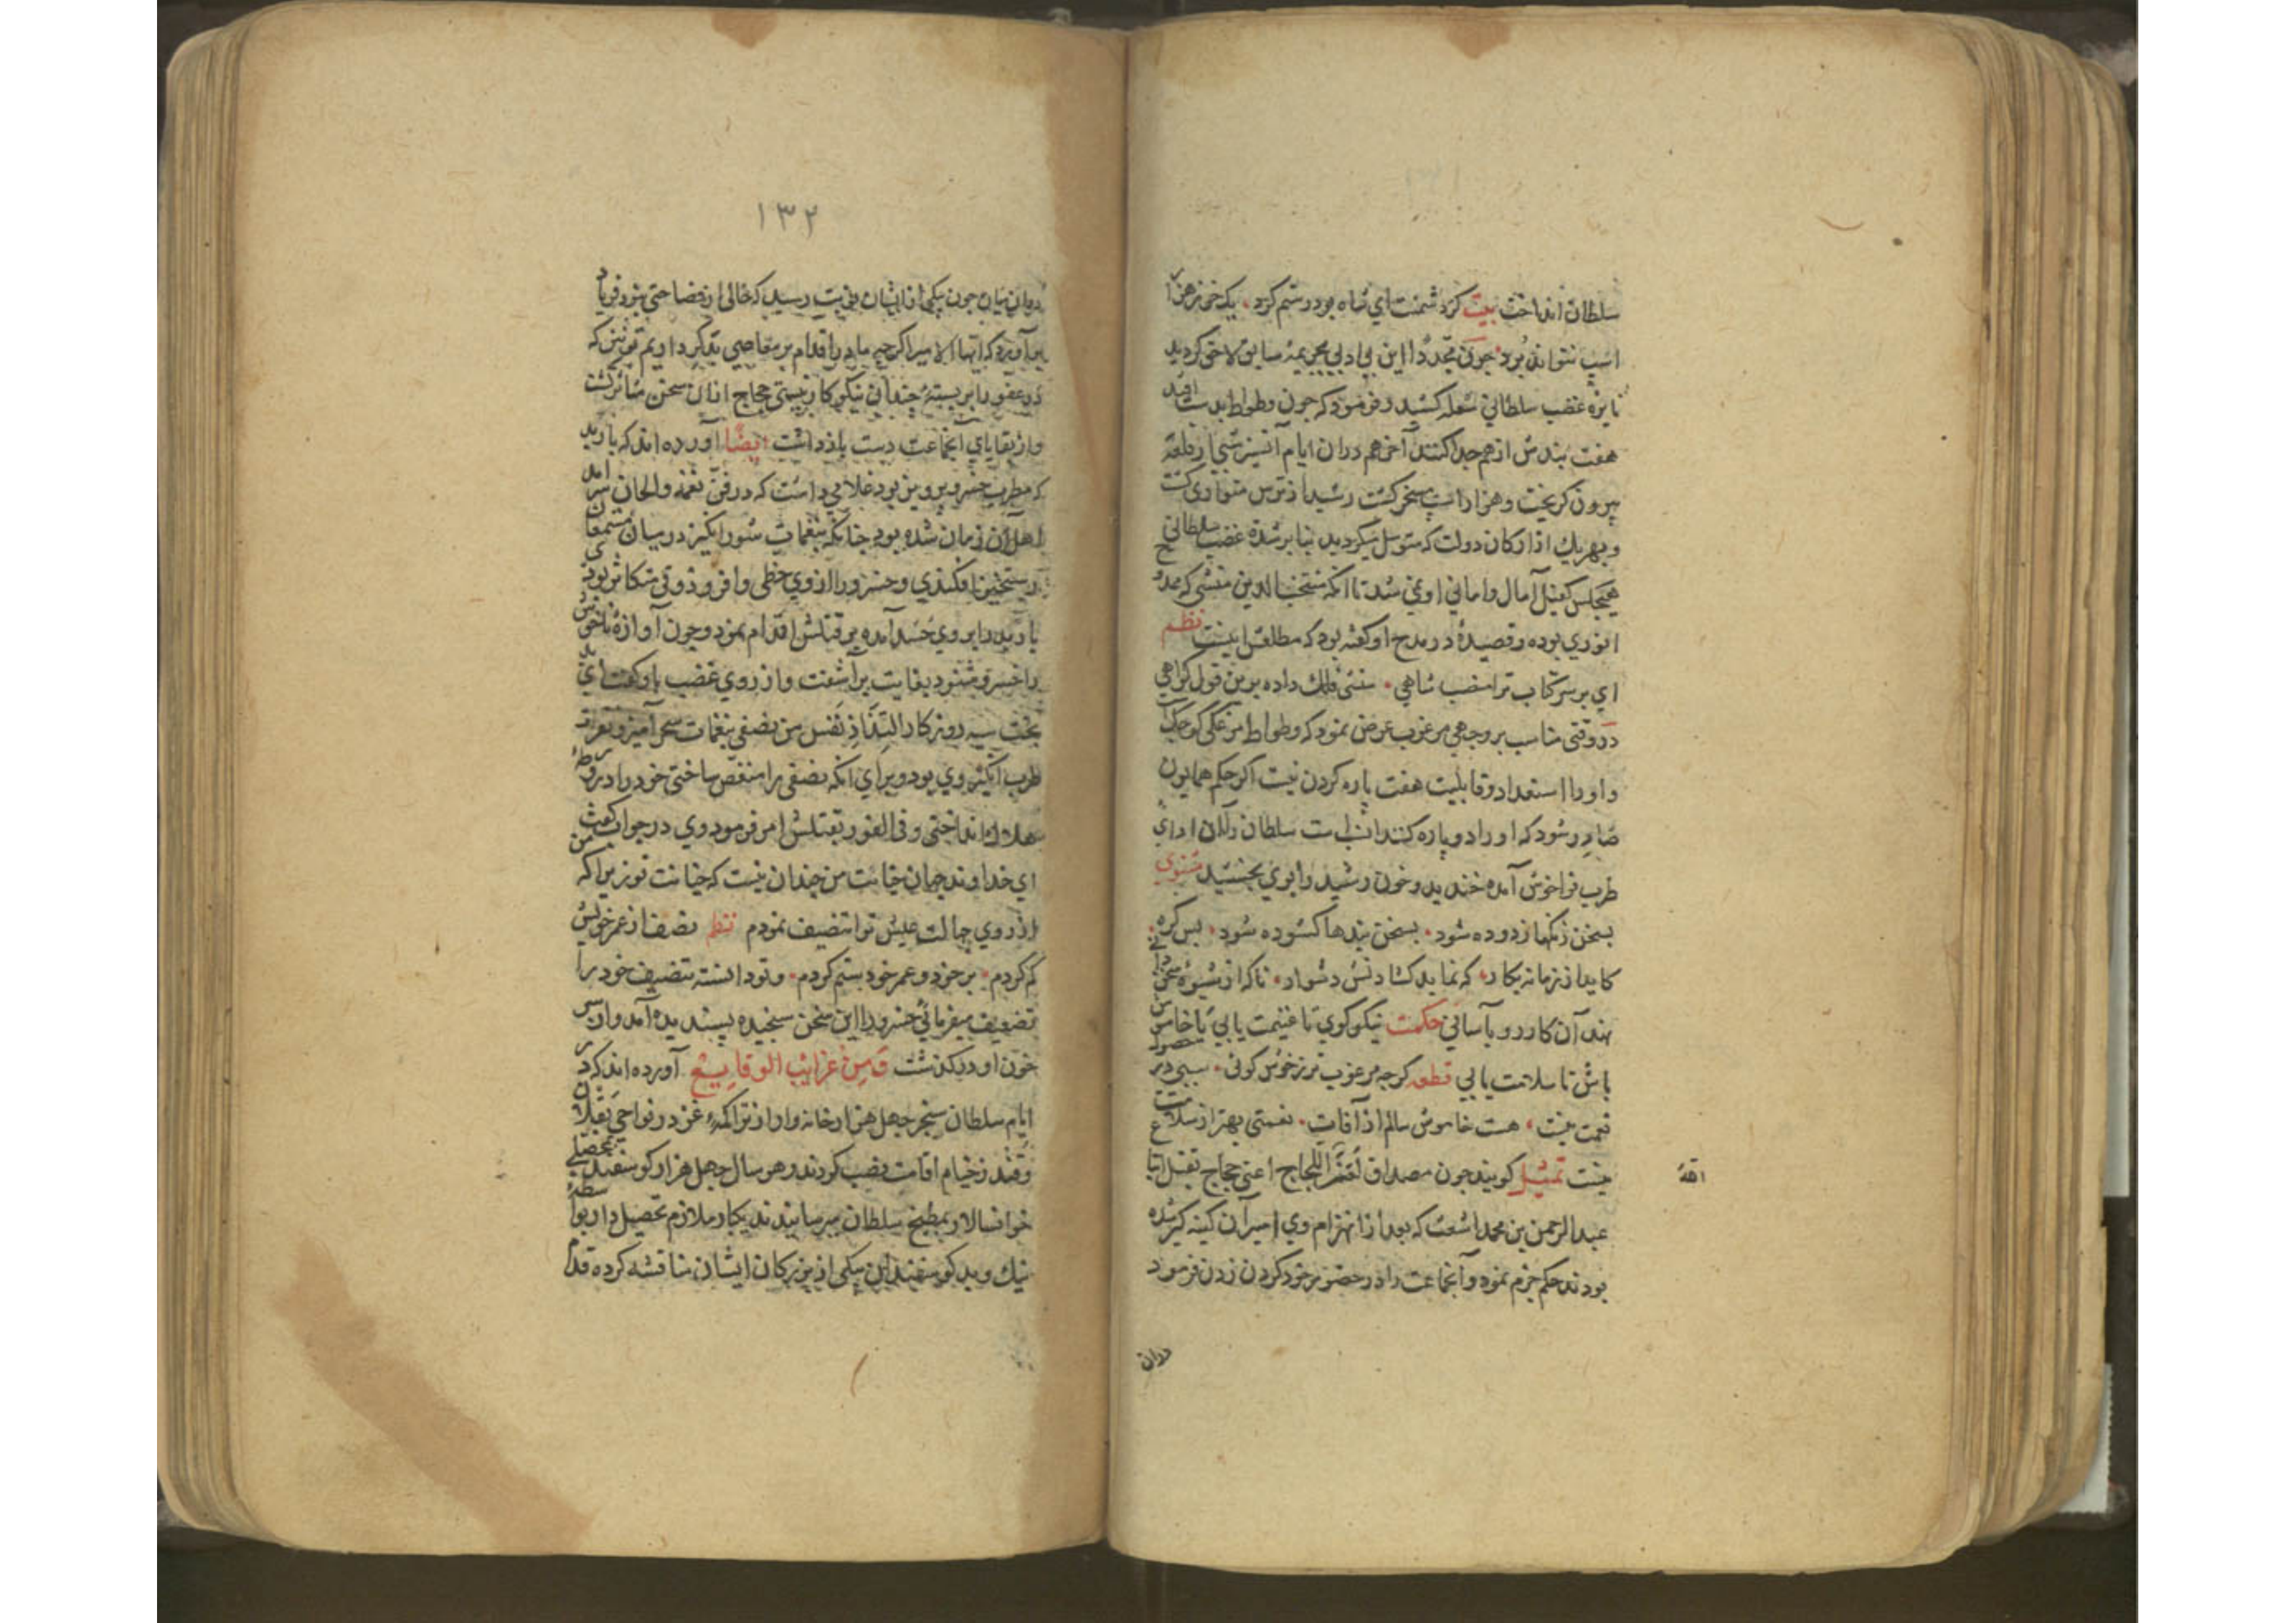 سلطان انداخت بیت کر دشمنت ای شاه بود رستم کرد • یک خر ز هزار
اسپ نتواند برد چون مجددا این بی ادبی بجریمهٔ سابق لاحق کردید
نایرهٔ غضب سلطانی شعله کشید و فرمود که چون وطواط بدست افتد
هفت بندش از هم جدا کنند آخر هم دران ایام آتسز شبی از قلعه
بیرون کریخت و هزاراسپ مسخر کشت رشید از ترس متواری کشت
و بهر یك از ارکان دولت که متوسل میکردید بنابر شدة غضب سلطانی
هیچکس کفیل آمال و امانی او نمی شد تا انکه منتخب الدین منشی که ممدوح
انوری بوده و قصیدهٔ در مدح او کفته بود که مطلعش اینست نظم
ای بر سر کتاب ترا منصب شاهی • منشی فلك داده برین قول کواهی
در وقتی مناسب بر وجهی مرغوب عرض نمود که وطواط مرغکی کوچکست
و او را استعداد و قابلیت هفت پاره کردن نیست اکر حکم همایون
صادر شود که او را دو پاره کنند انسب است سلطان را ازان ادای
طرب فزا خوش آمده خندید و خون رشید را بوی بخشید مثنوی
بسخن زنکها زدوده شود • بسخن بندها کشوده شود • بس کره
کاید از زمانه بکار • که نماید کشادنش دشوار • ناکه از شیوهٔ سخن دانی
نهد آن کار رو بآسانی حکمت نیکو کوی تا غنیمت یابی یا خاموش
باش تا سلامت یابی قطعه کرچه مرغوب تر ز خوش کوئی • سببی در حصول
نعمت نیست • هست خاموش سالم از آفات • نعمتی بهتر از سلامت
نیست تمثیل کویند چون مصداق اللجاج اعنی حجاج بقتل اتباع
عبدالرحمن بن محمد اشعث که بعد از انهزام وی اسیر آن کینه کیر شده
بودند حکم جزم نمود و آنجماعت را در حضور خود کردن زدن فرمود
دران
۱۳۲
دران میان چون یکی از ایشان نوبت رسید که خالی از فصاحتی نبود فریاد
بر آورد که ایها الامیر اکرچه ما در اقدام بر معاصی بد کرداریم تو نیز که
در عفو را بر بستهٔ چندانی نیکو کار نیستی حجاج ازان سخن متاثر کشت
و از بقایای آنجماعت دست باز داشت ایضا آورده اند که باربد
که مطرب خسرو پرویز بود غلامی داشت که در فن نغمه و الحان سرآمد
اهل آن زمان شده بود چنانکه بنغمات شور انکیز در میان مستمعان
رستخیز افکندی و خسرو را از وی حظی وافر و ذوقی متکاثر بودی
باربد را بر وی حسد آمده بر قتلش اقدام نمود و چون آوازهٔ ناخوش
را خسرو شنود بغایت بر آشفت و از روی غضب با او کفت ای بد
بخت سیه روزکار التذاذ نفس من نصفی بنغمات سحر آمیز و
طرب انکیز وی بود و برای انکه نصفی را منغص ساختی خود را در ورطهٔ
هلاك انداختی و فی الفور بقتلش امر فرمود وی در جواب کفت
ای خداوند جهان خیانت من چندان نیست که خیانت تو زیرا که من
از روی جهالت عیش ترا تنصیف نمودم نظم نصف از عمر خویش
کم کردم • بر خود و عمر خود ستم کردم • و تو دانسته تنصیف خود را
تضعیف میفرمائی خسرو را این سخن سنجیده پسندیده آمد و از سر
خون او در کذشت وَمِن غرائب الوقایع آورده اند که در
ایام سلطان سنجر چهل هزار خانه وار از تراکمهٔ غز در نواحی بغلان
و قندز خیام اقامت نصب کردند و هر سال چهل هزار کوسفند بمحصلی
خوانسالار بمطبخ سلطان میرسانیدند یکبار ملازم تحصیلدار بواسطهٔ
نیك و بد کوسفند با یکی از بزرکان ایشان مناقشه کرده قدم